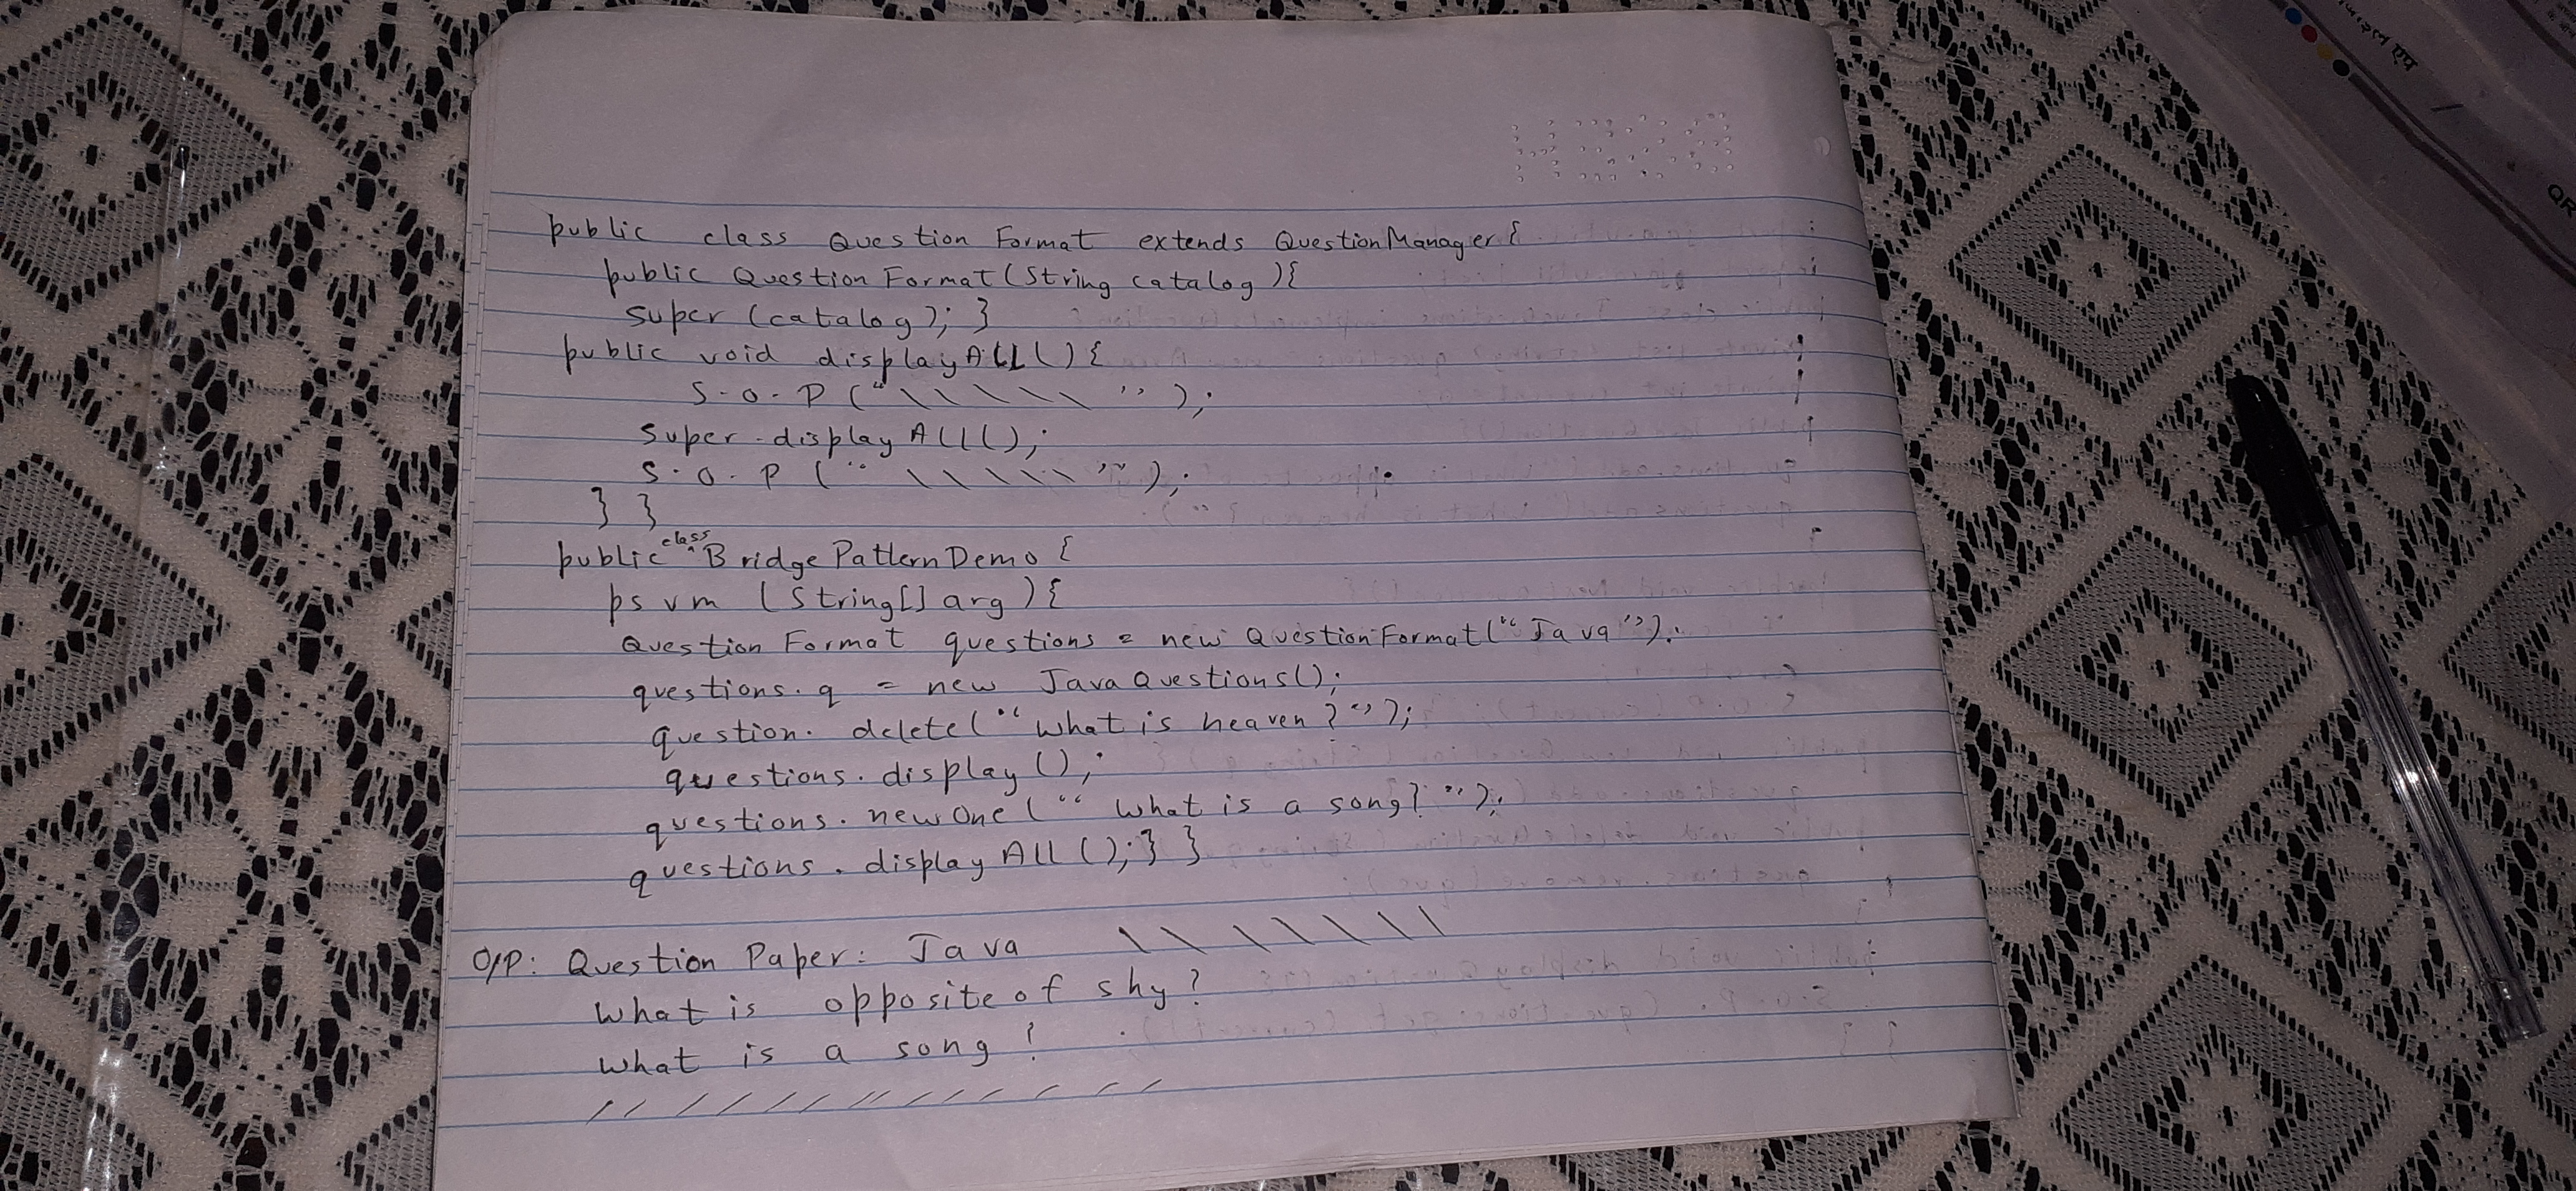 public class Question Format extends QuestionManager {
public Question Format (String catalog) {
super (catalog); }
public void displayAll() {
S.O.P ("\ \ \ \ \ ");
super.displayAll();
S.O.P (" \ \ \ \ \ ");
} }
public class BridgePatternDemo {
psvm (String[] arg) {
Question Format questions = new QuestionFormat("Java");
questions.q = new JavaQuestions();
question. delete("what is heaven?");
questions.display();
questions.newOne (" what is a song? ");
questions.displayAll(); } }
O/P: Question Paper: Java \ \ \ \ \ \ \ \
what is opposite of shy?
what is a song?
/ / / / / / / / / / / / /